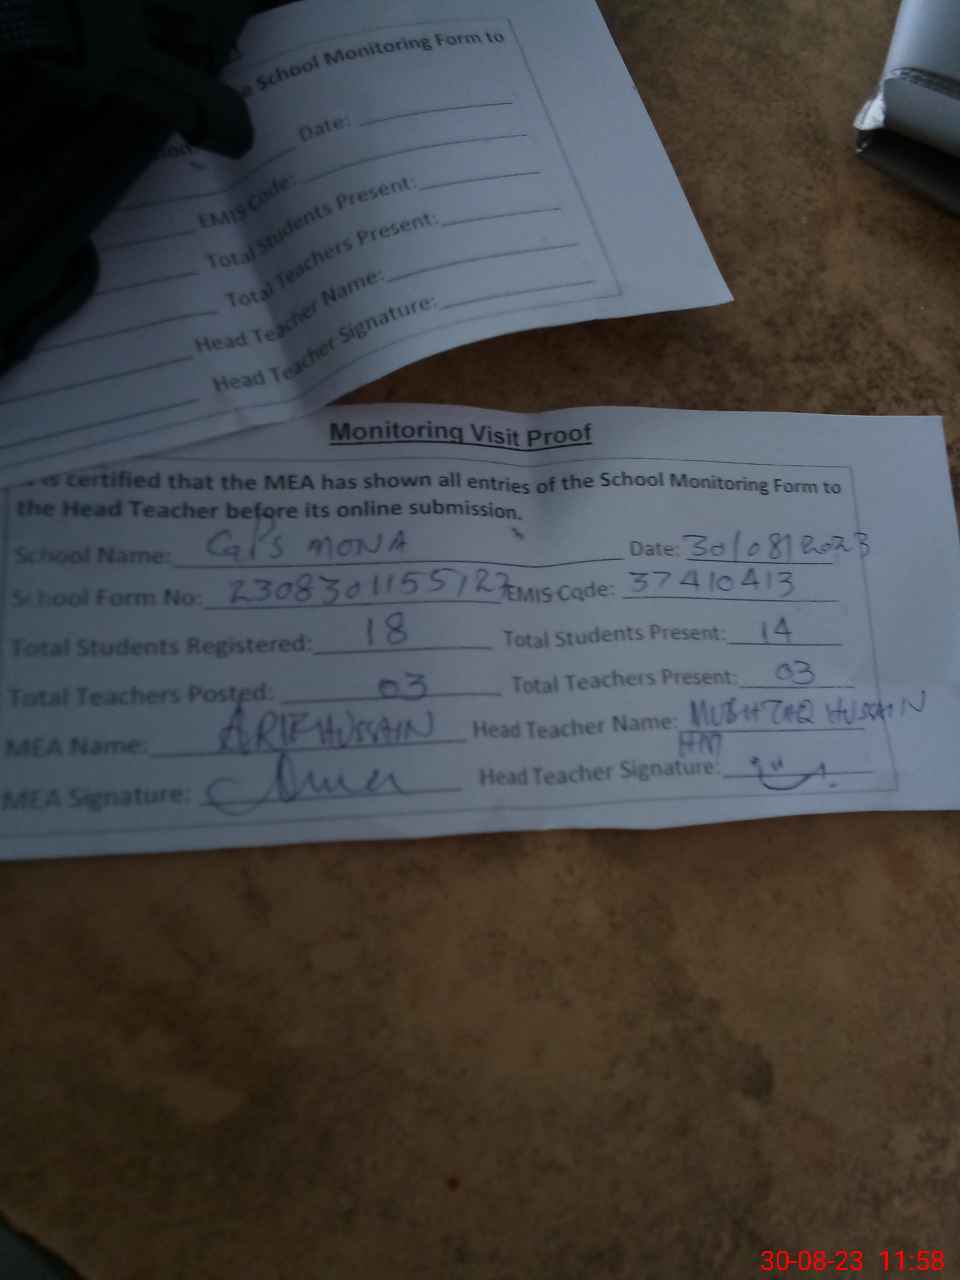 School Monitoring Form to
Date:
EMIS Code:
Total Students Present:
Total Teachers Present:
Head Teacher Name:
Head Teacher Signature:
Monitoring Visit Proof
is certified that the MEA has shown all entries of the School Monitoring Form to
the Head Teacher before its online submission.
School Name: GPS MONA Date: 30/08/2023
School Form No: 2308301155127 EMIS Code: 37410413
Total Students Registered: 18 Total Students Present: 14
Total Teachers Posted: 03 Total Teachers Present: 03
MEA Name: ARIF HUSSAIN Head Teacher Name: MUSHTAQ HUSSAIN
HM
MEA Signature: Head Teacher Signature:
30-08-23 11:58